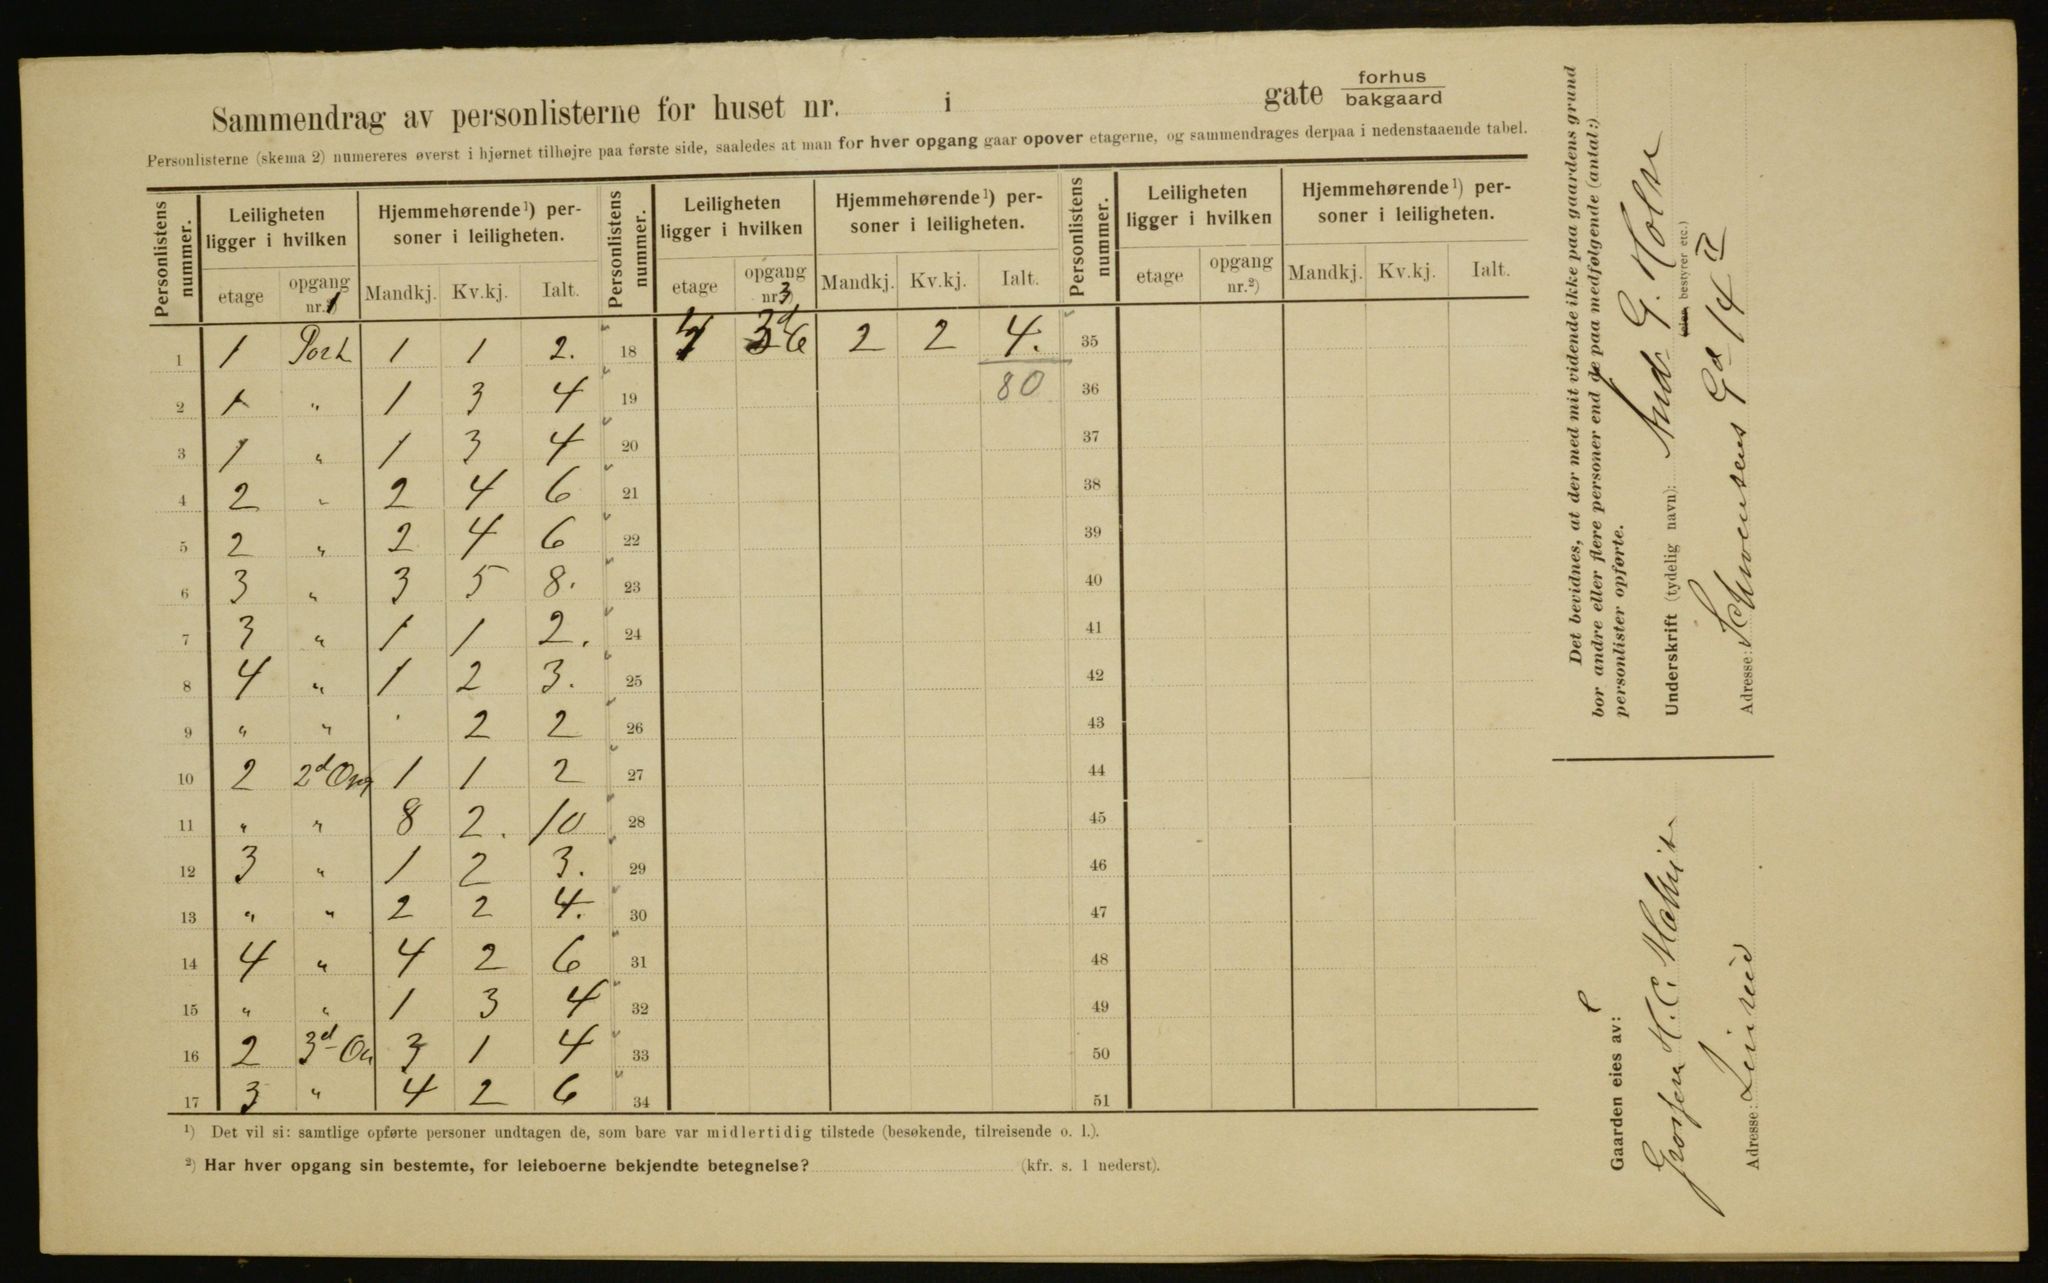 Sammendrag av personlisterne for huset nr. i gate forhus
bakgaard
Personlisterne (skema 2) numereres øverst i hjørnet tilhøjre paa første side, saaledes at man for hver opgang gaar opover etagerne, og sammendrages derpaa i nedenstaaende tabel.
Personlistens nummer. Leiligheten ligger i hvilken Hjemmehørende¹) personer i leiligheten. Personlistens nummer. Leiligheten ligger i hvilken Hjemmehørende¹) personer i leiligheten. Personlistens nummer. Leiligheten ligger i hvilken Hjemmehørende¹) personer i leiligheten.
etage opgang nr. 1 Mandkj. Kv.kj. Ialt. etage opgang nr. 3 Mandkj. Kv.kj. Ialt. etage opgang nr.²) Mandkj. Kv.kj. Ialt.
1 1 Port 1 1 2. 18 2 2 4. 35
2 1 " 1 3 4 19 80 36
3 1 " 1 3 4 20 37
4 2 " 2 4 6 21 38
5 2 " 2 4 6 22 39
6 3 " 3 5 8. 23 40
7 3 " 1 1 2. 24 41
8 4 " 1 2 3. 25 42
9 " " 2 2 26 43
10 2 2d Opg 1 1 2 27 44
11 " " 8 2. 10 28 45
12 3 " 1 2 3. 29 46
13 " " 2 2 4. 30 47
14 4 " 4 2 6 31 48
15 " " 1 3 4 32 49
16 2 3d 3 1 4 33 50
17 3 " 4 2 6 34 51
¹) Det vil si: samtlige opførte personer undtagen de, som bare var midlertidig tilstede (besøkende, tilreisende o. l.).
²) Har hver opgang sin bestemte, for leieboerne bekjendte betegnelse? (kfr. s. 1 nederst).
Det bevidnes, at der med mit vidende ikke paa gaardens grund
bor andre eller flere personer end de paa medfølgende (antal:)
personlister opførte.
Underskrift (tydelig navn): And. G. Holm
(eier, bestyrer etc.)
Adresse: Schwensens Gd 14 II
Gaarden eies av:
H. C.
Adresse: